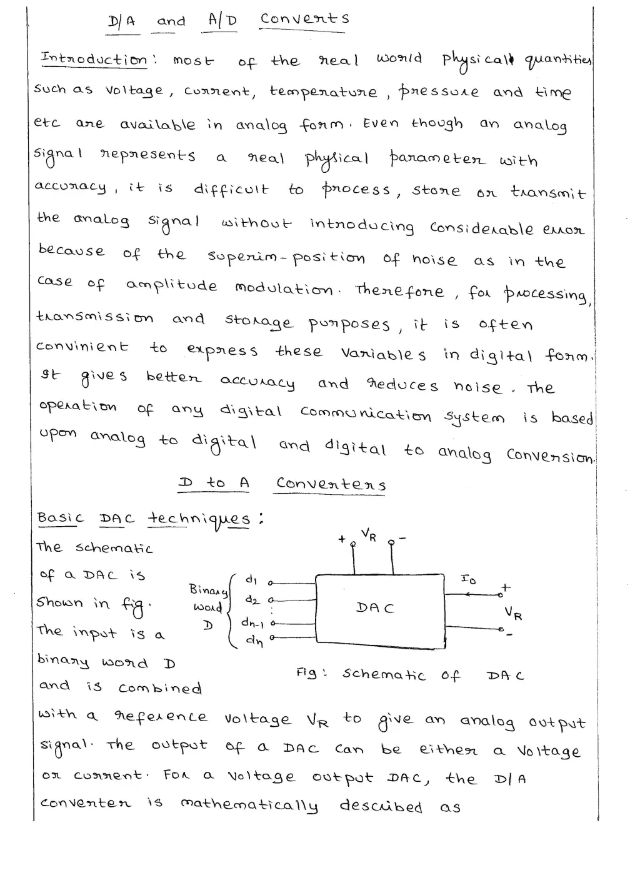 D/A and A/D Converts
Introduction: most of the real world physical quantities
such as voltage, current, temperature, pressure and time
etc are available in analog form. Even though an analog
signal represents a real physical parameter with
accuracy, it is difficult to process, store or transmit
the analog signal without introducing considerable error
because of the superim-position of noise as in the
case of amplitude modulation. Therefore, for processing,
transmission and storage purposes, it is often
convinient to express these variables in digital form.
It gives better accuracy and reduces noise. The
operation of any digital communication system is based
upon analog to digital and digital to analog conversion.
D to A Converters
Basic DAC techniques:
The schematic
of a DAC is
shown in fig.
The input is a
binary word D
and is combined
+ VR -
Binary
word
D
d1
d2
:
dn-1
dn
DAC
Io
+
VR
-
Fig: schematic of DAC
with a reference voltage VR to give an analog output
signal. The output of a DAC can be either a voltage
or current. For a voltage output DAC, the D/A
converter is mathematically described as